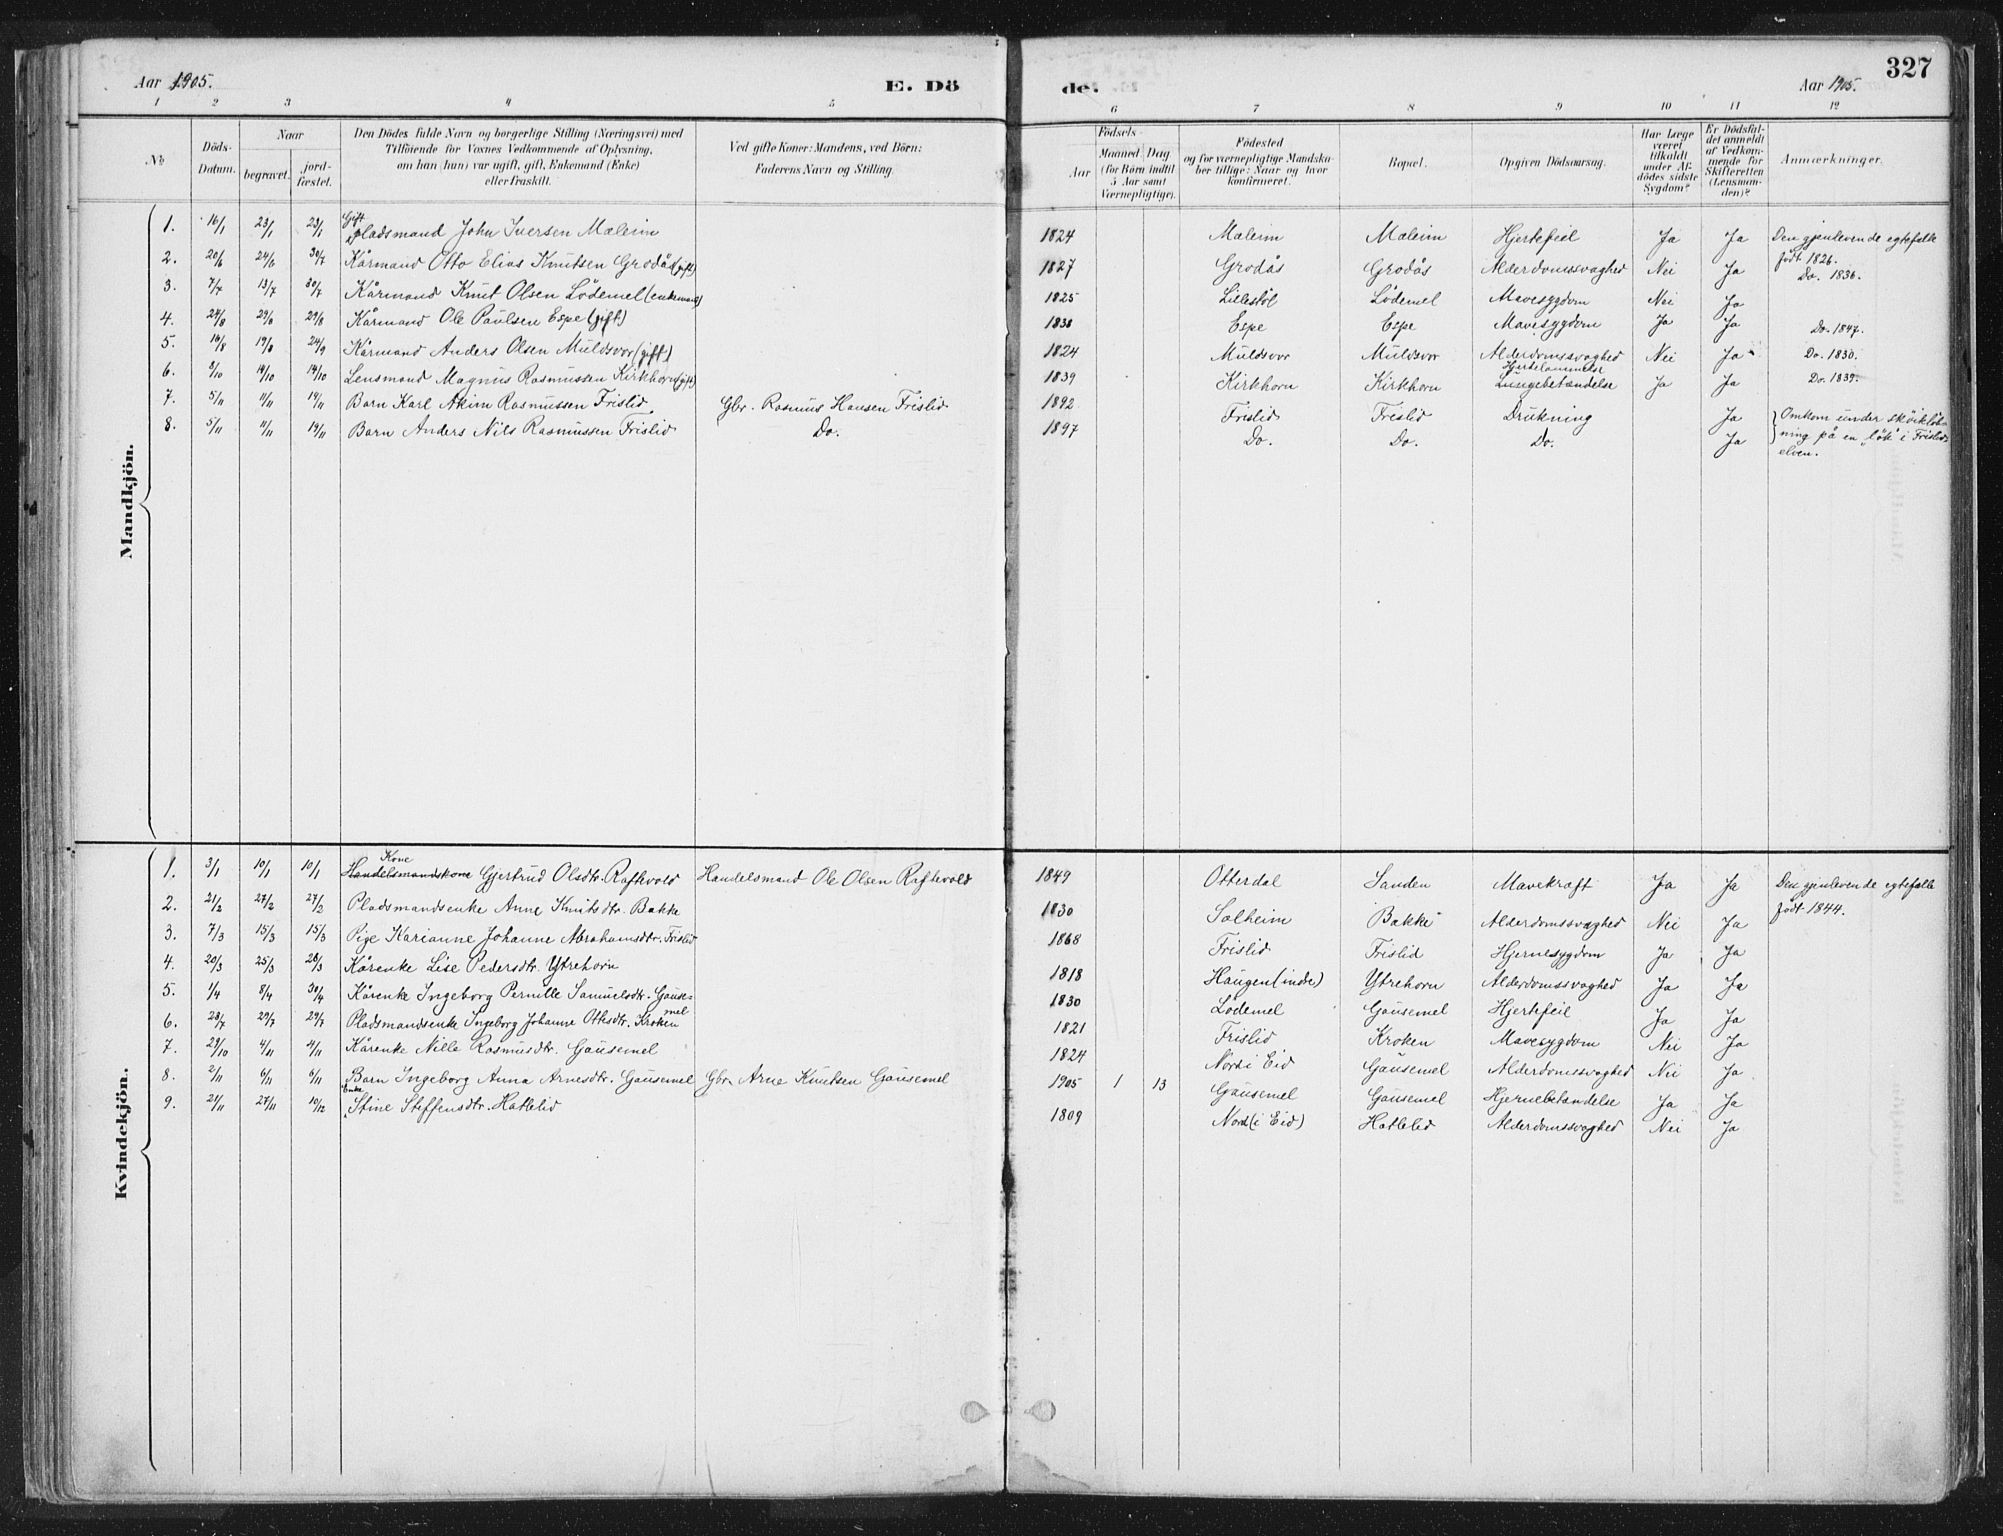 Aar 1905. E. Dö de. Aar 1905. 327
1 2 3 4 5 6 7 8 9 10 11 12
№ Döds-Datum. Naar begravet. jord-fæstet. Den Dödes fulde Navn og borgerlige Stilling (Næringsvei) med Tilföiende for Voxnes Vedkommende af Oplysning, om han (hun) var ugift, gift, Enkemand (Enke) eller fraskilt. Ved gifte Koner: Mandens, ved Börn: Faderens Navn og Stilling. Födsels- Aar Maaned Dag (for Börn indtil 5 Aar samt Værnepligtige). Födested og for værnepligtige Mandskaber tillige: Naar og hvor konfirmeret. Bopæl. Opgiven Dödsaarsag. Har Læge været tilkaldt under Afdödes sidste Sygdom? Er Dödsfaldet anmeldt af Vedkommende for Skifteretten (Lensmanden)? Anmærkninger.
Mandkjön.
1. 16/1 23/1 23/1 Gift pladsmand John Iversen Maleim 1824 Maleim Maleim Hjertefeil Ja Ja Den gjenlevende egtefalle födt 1826.
2. 20/6 24/6 30/7 Kårmand Otto Elias Knutsen Grodås (gift) 1827 Grodås Grodås Alderdomssvaghed Nei Ja Do. 1836.
3. 7/7 13/7 30/7 Kårmand Knut Olsen Lödemel (enkemand) 1825 Lillestöl Lödemel Mavesygdom Nei Ja
4. 24/8 29/8 29/8 Kårmand Ole Paulsen Espe (gift) 1838 Espe Espe Mavesygdom Ja Ja Do. 1847.
5. 14/8 19/8 24/9 Kårmand Anders Olsen Muldsvor (gift) 1824 Muldsvor Muldsvor Alderdomssvaghed Nei Ja Do. 1830.
6. 9/10 14/10 14/10 Lensmand Magnus Rasmussen Kirkhorn (gift) 1839 Kirkhorn Kirkhorn Lungebetændelse Ja Ja Do. 1839.
7. 5/11 11/11 19/11 Barn Karl Akim Rasmussen Frislid Gbr. Rasmus Hansen Frislid 1892 Frislid Frislid Drukning Ja Omkom under sköiteløbning på en "lök" i Frislidelven.
8. 5/11 11/11 19/11 Barn Anders Nils Rasmussen Frislid Do. 1897 Do. Do. Do. Ja
Kvindekjön.
1. 3/1 10/1 10/1 Handelsmandskone Kone Gjertrud Olsdtr. Raftevold Handelsmand Ole Olsen Raftevold 1849 Otterdal Sanden Mavekræft Ja Ja Den gjenlevende egtefalle födt 1844.
2. 21/2 27/2 27/2 Pladsmandsenke Anne Knutsdtr. Bakke 1830 Solheim Bakke Alderdomssvaghed Nei Ja
3. 7/3 15/3 15/3 Pige Karianne Johanne Abrahamsdtr. Frislid 1868 Frislid Frislid Hjernesygdom Ja Ja
4. 20/3 25/3 28/3 Kårenke Lise Pedersdtr. Ytrehorn 1818 Haugen (indre) Ytrehorn Alderdomssvaghed Ja Ja
5. 1/4 8/4 30/4 Kårenke Ingeborg Pernille Samuelsdtr. Gausemel 1830 Lödemel Gausemel Hjertefeil Ja Ja
6. 23/7 29/7 29/7 Pladsmandsenke Ingeborg Johanne Ottesdtr. Kroken 1821 Frislid Kroken Mavesygdom Nei Ja
7. 29/10 4/11 4/11 Kårenke Nille Rasmusdtr. Gausemel 1824 Nord i Eid Gausemel Alderdomssvaghed Nei Ja
8. 2/11 6/11 6/11 Barn Ingeborg Anna Arnesdtr. Gausemel Gbr. Arne Knutsen Gausemel 1905 1 13 Gausemel Gausemel Hjernebetændelse Ja Ja
9. 21/11 27/11 10/12 Enke Stine Steffensdtr. Hatlelid 1809 Nord (i Eid) Hatlelid Alderdomssvaghed Nei Ja